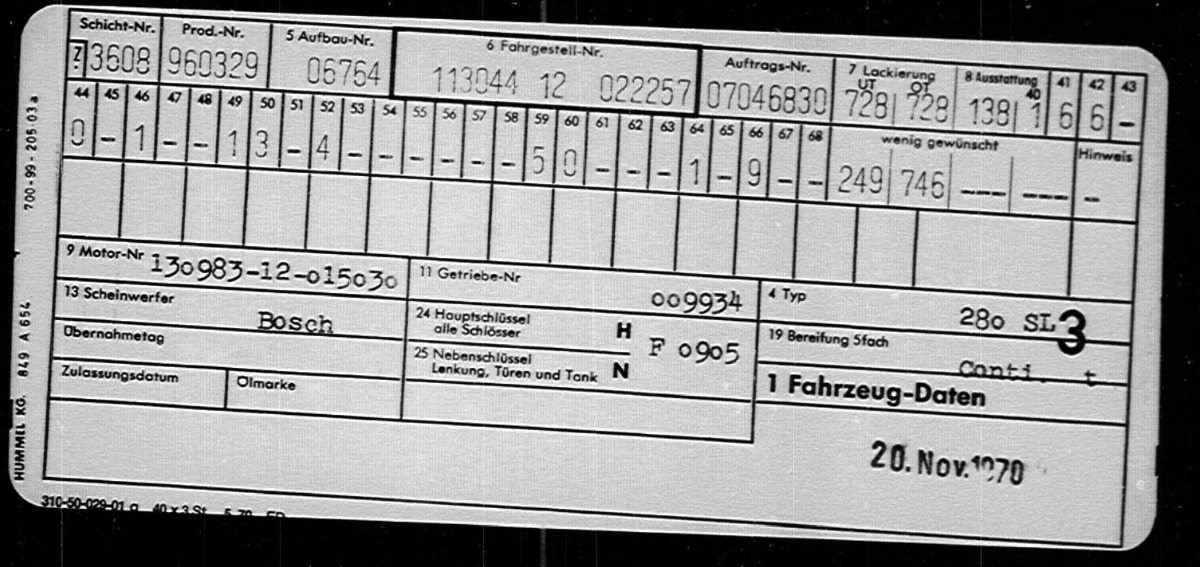 Schicht-Nr. Prod.-Nr. 5 Aufbau-Nr. 6 Fahrgestell-Nr. Auftrags-Nr. 7 Lackierung 8 Ausstattung 41 42 43
UT OT 40
7. 3608 960329 06764 113044 12 022257 07046830 728 728 138 1 6 6 -
44 45 46 47 48 49 50 51 52 53 54 55 56 57 58 59 60 61 62 63 64 65 66 67 68 wenig gewünscht Hinweis
0 - 1 - - 13 - 4 - - - - - - 50 - - - 1 - 9 - - 249 746 --- --- -
9 Motor-Nr 130983-12-015030 11 Getriebe-Nr 009934 4 Typ 280 SL 3
13 Scheinwerfer Bosch 24 Hauptschlüssel alle Schlösser H F 0905 19 Bereifung 5fach Conti. t
Übernahmetag 25 Nebenschlüssel Lenkung, Türen und Tank N
Zulassungsdatum Olmarke 1 Fahrzeug-Daten
20. Nov. 1970
310-50-029-01 a 40 x 3 St. 5.70
HUMMEL KG. 849 A 654 700-99-205-03 a